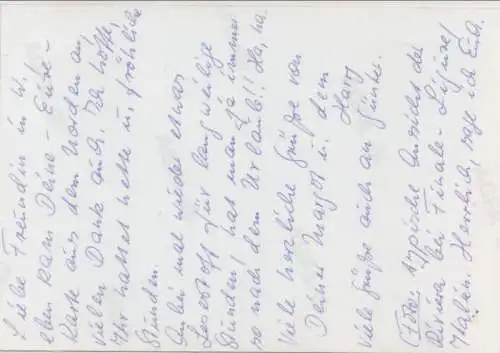 Liebe Freundin in W.,
eben kam Deine - Eure -
Karte aus dem Norden an,
vielen Dank auch! Ich hoffe,
Ihr hattet nette u. fröhliche
Stunden.
Anbei mal wieder etwas
Lesestoff für langweilige
Stunden! hat man ja immer
so nach dem Urlaub!! Ha, ha.
Viele herzliche Grüße von
Deiner Margot u. dem
Harry
Viele Grüße auch an Günter.
Foto: typische Ansicht der
Riviera bei Finale - Ligure/
Italien. Herrlich, sage ich Euch.